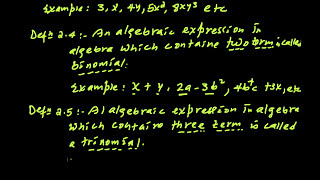 Example: 3, x, 4y, 5x², 8xy³ etc
Defⁿ 2.4:- An algebraic expression in
algebra which containe two term is called
binomial.
Example: x + y, 2a - 3b², 4b⁴c +3x, etc
Defⁿ 2.5:- Al algebraic expression in algebra
which contains three term is called
a trinomial.